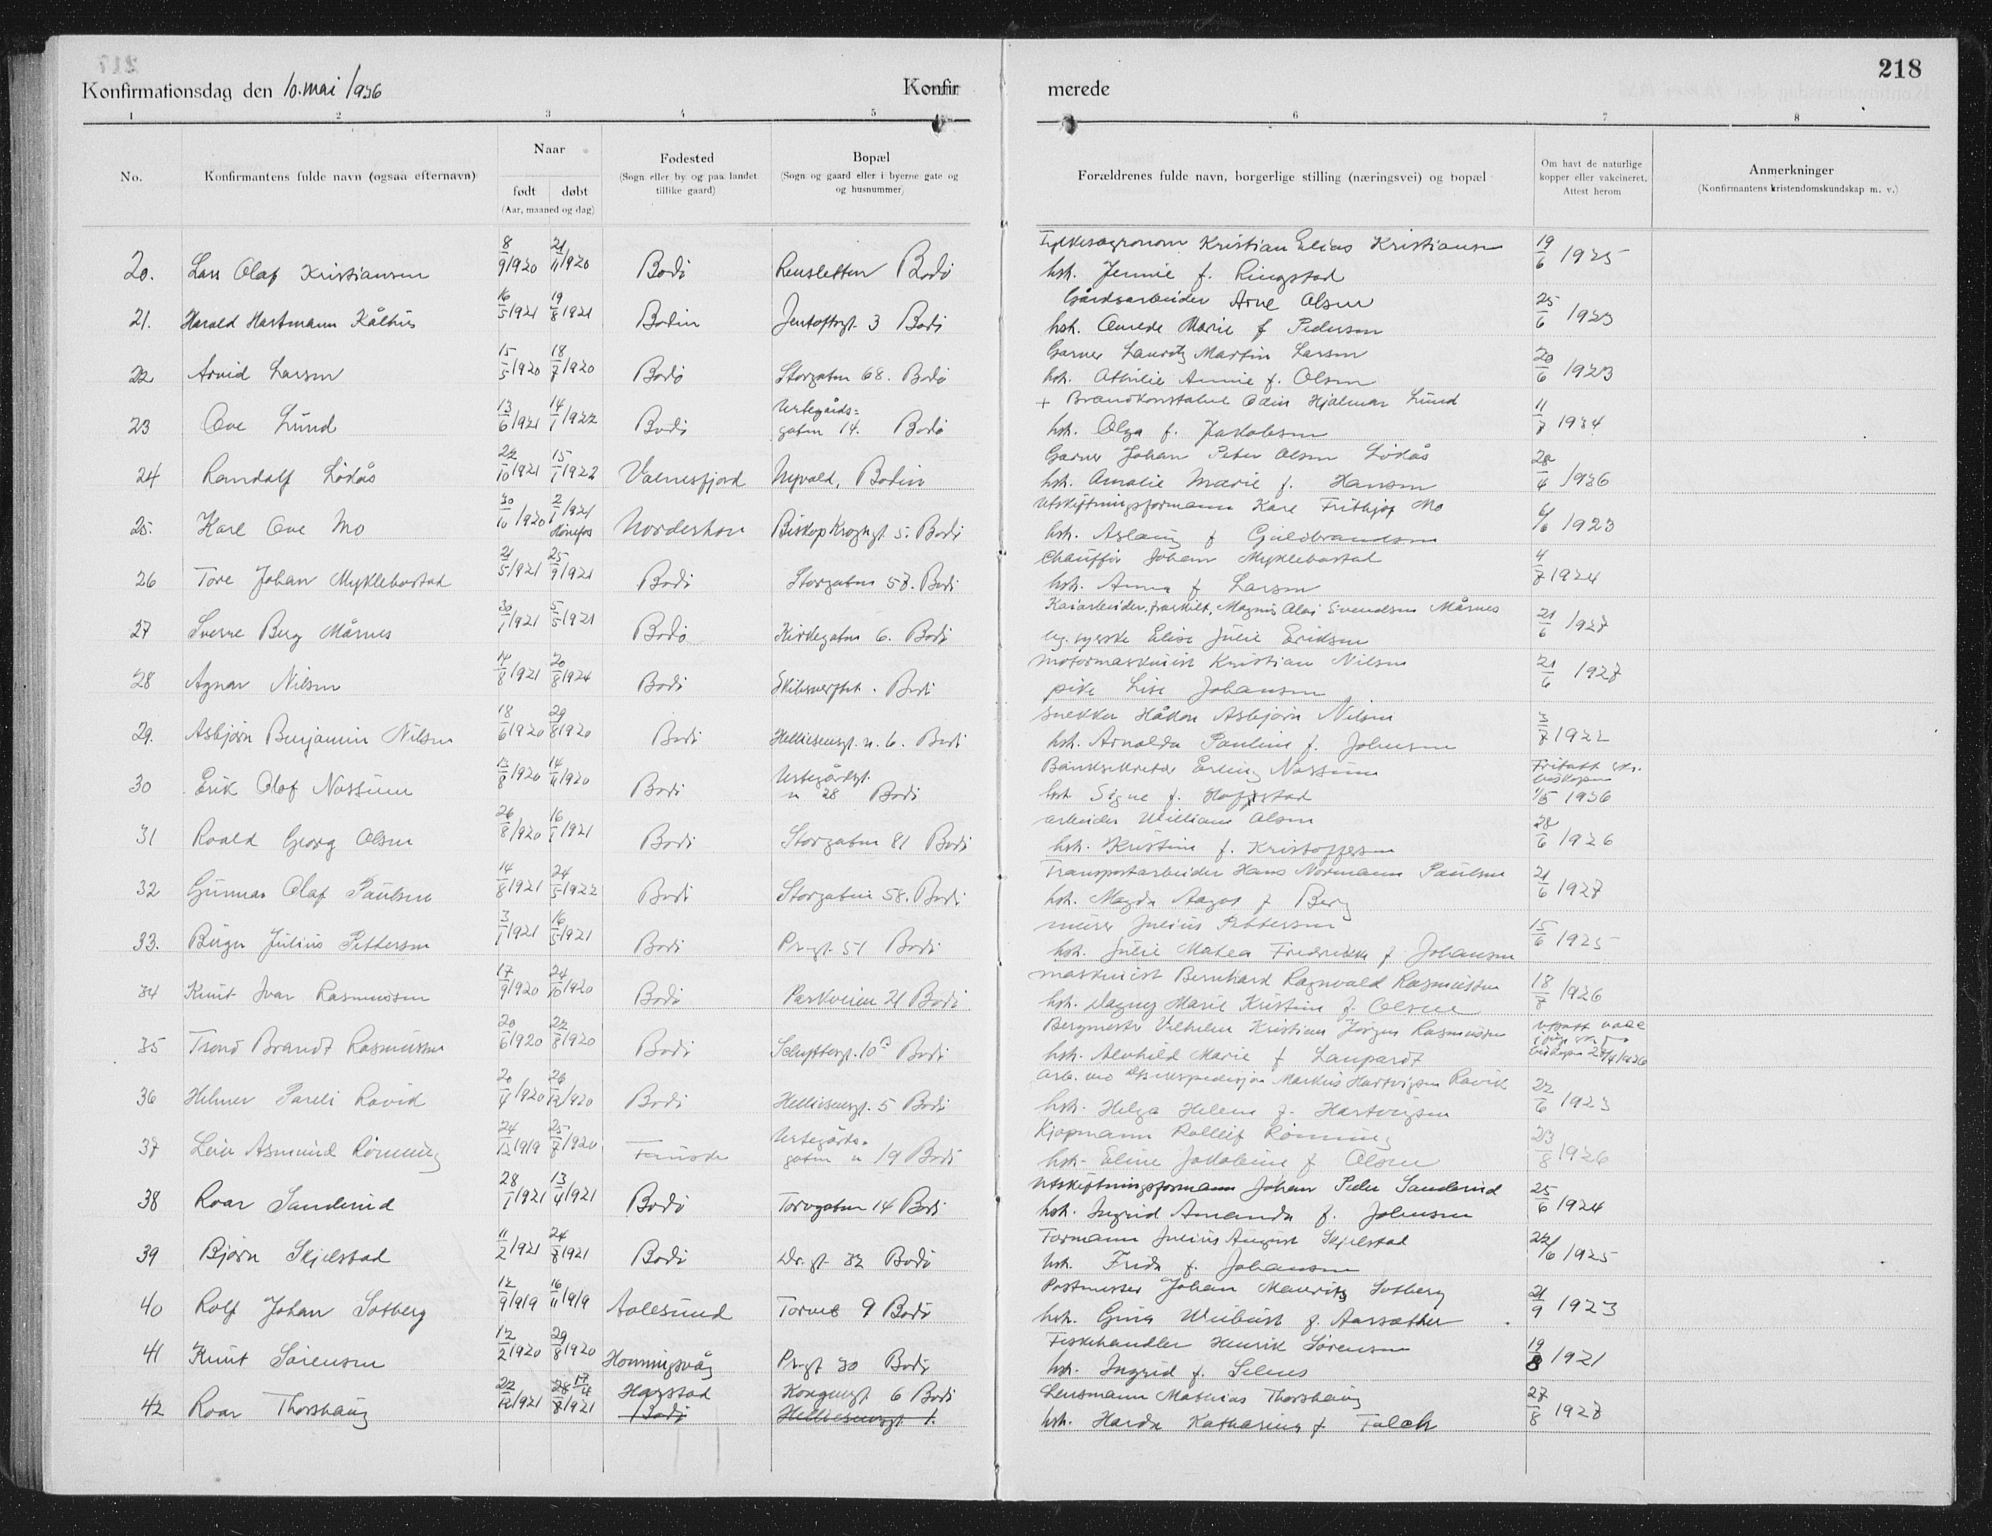 218
Konfirmationsdag den 10. mai 1936 Konfirmerede
1 2 3 4 5 6 7 8
No. Konfirmantens fulde navn (ogsaa efternavn) Naar født døbt (Aar, maaned og dag) Fødested (Sogn eller by og paa landet tillike gaard) Bopæl (Sogn og gaard eller i byerne gate og og husnummer) Forældrenes fulde navn, borgerlige stilling (næringsvei) og bopæl Om havt de naturlige kopper eller vakcineret. Attest herom Anmerkninger (Konfirmantens kristendomskundskap m. v.)
20. Lars Olaf Kristiansen 8/9 1920 21/11 1920 Bodø Rensletten Bodø Fylkesagronom Kristian Elias Kristiansen 19/6 1925
hst. Jennie f. Ringstad
21. Harald Hartmann Kålhus 16/5 1921 19/8 1921 Bodin Jentoftsgt. 3 Bodø Gårdsarbeider Arne Olsen 25/6 1923
hst. Marie f. Pedersen
22 Arvid Larsen 15/5 1920 18/7 1920 Bodø Storgaten 68. Bodø Garver Lauritz Martin Larsen 20/6 1923
hst. Othilie Annie f. Olsen
23 Ove Lund 13/6 1921 14/1 1922 Bodø Urtegårds=gaten 14. Bodø + Brandkonstabel Odin Hjalmar Lund 11/7 1934
hst. Olga f. Jakobsen
24 Randolf Løkås 22/10 1921 15/1 1922 Valnesfjord Nyvold, Bodin Garver Johan Peter Olsen Løkås 28/4 1936
hst. Amalie Marie f. Hansen
25. Karl Ove Mo 30/10 1920 2/1 1921 Hønefos Norderhov Biskop Kroghgt. 5. Bodø Utskiftningsformann Kare Frithjof Mo 6/6 1923
hst. Aslaug f Guldbrandsen
26 Tore Johan Myklebostad 21/5 1921 25/9 1921 Bodø Storgaten 57. Bodø Chauffør Johan Myklebostad 4/7 1924
hst. Anna f Larsen
27 Sverre Berg Mårnes 30/1 1921 5/5 1921 Bodø Kirkegaten 6. Bodø Kaiarbeider, fraskilt, Magnus Olai Svendsen Mårnes 21/6 1927
Elise Julie Eriksen
28 Agnar Nilsen 14/8 1921 20/8 1924 Bodø Bodø motormaskinist Kristian Nilsen 21/6 1927
pike Lise Johansen
29. Asbjørn Benjamin Nilsen 18/6 1920 29/8 1920 Bodø Hellesensgt. n. 6. Bodø Snekker Håkon Asbjørn Nilsen 3/7 1922
hst. Arnolda Pauline f. Johnsen
30 Erik Olof Nossum 13/8 1920 14/11 1920 Bodø Urtegårdsgt. n 28 Bodø Banksekretær Erling Nossum Fritatt
hst Signe f. Hoffstad 1/5 1936
31 Roald Georg Olsen 26/8 1920 16/1 1921 Bodø Storgaten 81 Bodø arbeider William Olsen 28/6 1926
hst. Kristine f. Kristoffersen
32 Gunnar Olaf Paulsen 14/8 1921 24/5 1922 Bodø Storgaten 58. Bodø Transportarbeider Hans Normann Paulsen 21/6 1927
hst. Magda Aagot f Berg
33. Birger Julius Pettersen 3/1 1921 16/5 1921 Bodø Pr.gt. 51 Bodø murer Julius Pettersen 15/6 1925
hst. Julie Matea Fredrikke f Johansen
34 Knut Ivar Rasmussen 17/9 1920 24/10 1920 Bodø Parkveien 21 Bodø maskinist Bernhard Ragnvald Rasmussen 18/7 1926
hst. Dagny Marie Kristine f. Olsen
35 Trond Brandt Rasmussen 20/6 1920 22/8 1920 Bodø 10 B Bodø Bergmester Vilhelm Kristian Jørgen Rasmussen
hst. Alvhild Marie f Laupardt
36 Helmer Pareli Råvik 20/4 1920 26/12 1920 Bodø Hellesensgt. 5 Bodø Arb. ved Markus Hartvigsen Råvik 22/6 1923
hst. Helga Helene f. Hartvigsen
37 Leiv Asmund Rønning 24/12 1919 25/7 1920 Fauske Urtegårds-gaten n 19 Bodø Kjøpmann Rolleif Rønning 23/8 1926
hst. Eline Jakobine f Olsen
38 Roar Sanderud 28/1 1921 13/4 1921 Bodø Torvgaten 14 Bodø Utskiftningsformann Johan Peder Sanderud 25/6 1924
hst. Ingrid Amanda f. Johnsen
39 Bjørn Skjelstad 11/2 1921 24/8 1921 Bodø Dr. gt. 32 Bodø Formann Julius August Skjelstad 22/6 1925
hst. Frida f. Johansen
40 Rolf Johan Solberg 12/9 1919 16/11 1919 Aalesund Torvet 9 Bodø Postmester Johan Mauritz Solberg 21/9 1923
hst. Gina f. Aarsæther
41 Knut Sørensen 12/2 1920 29/8 1920 Honningsvåg Pr.gt 30 Bodø Fiskehandler Henrik Sørensen 19/8 1921
hst. Ingrid f. Selnes
42 Roar Thorshaug 22/12 1921 28/8 1921 17/4 Harstad Bodø Kongensgt 6 Bodø Hellesensgt 1. Lensmann Mathias Thorshaug 27/8 1928
hst. Harda Katharina f Falch